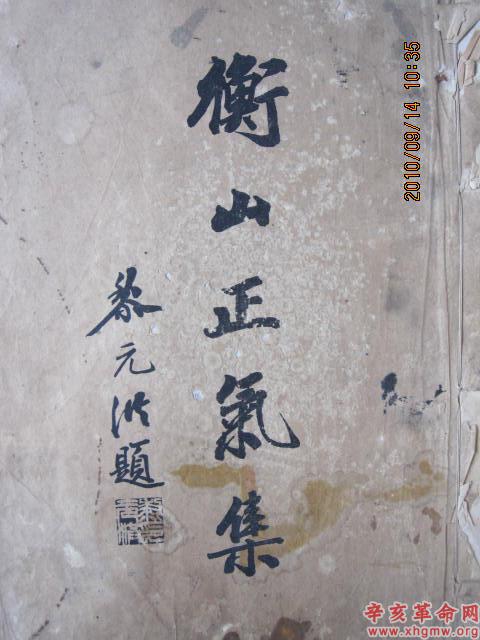 衡山正氣集
黎元洪題
黎元洪
2010/09/14 10:35
辛亥革命网
www.xhgmw.org